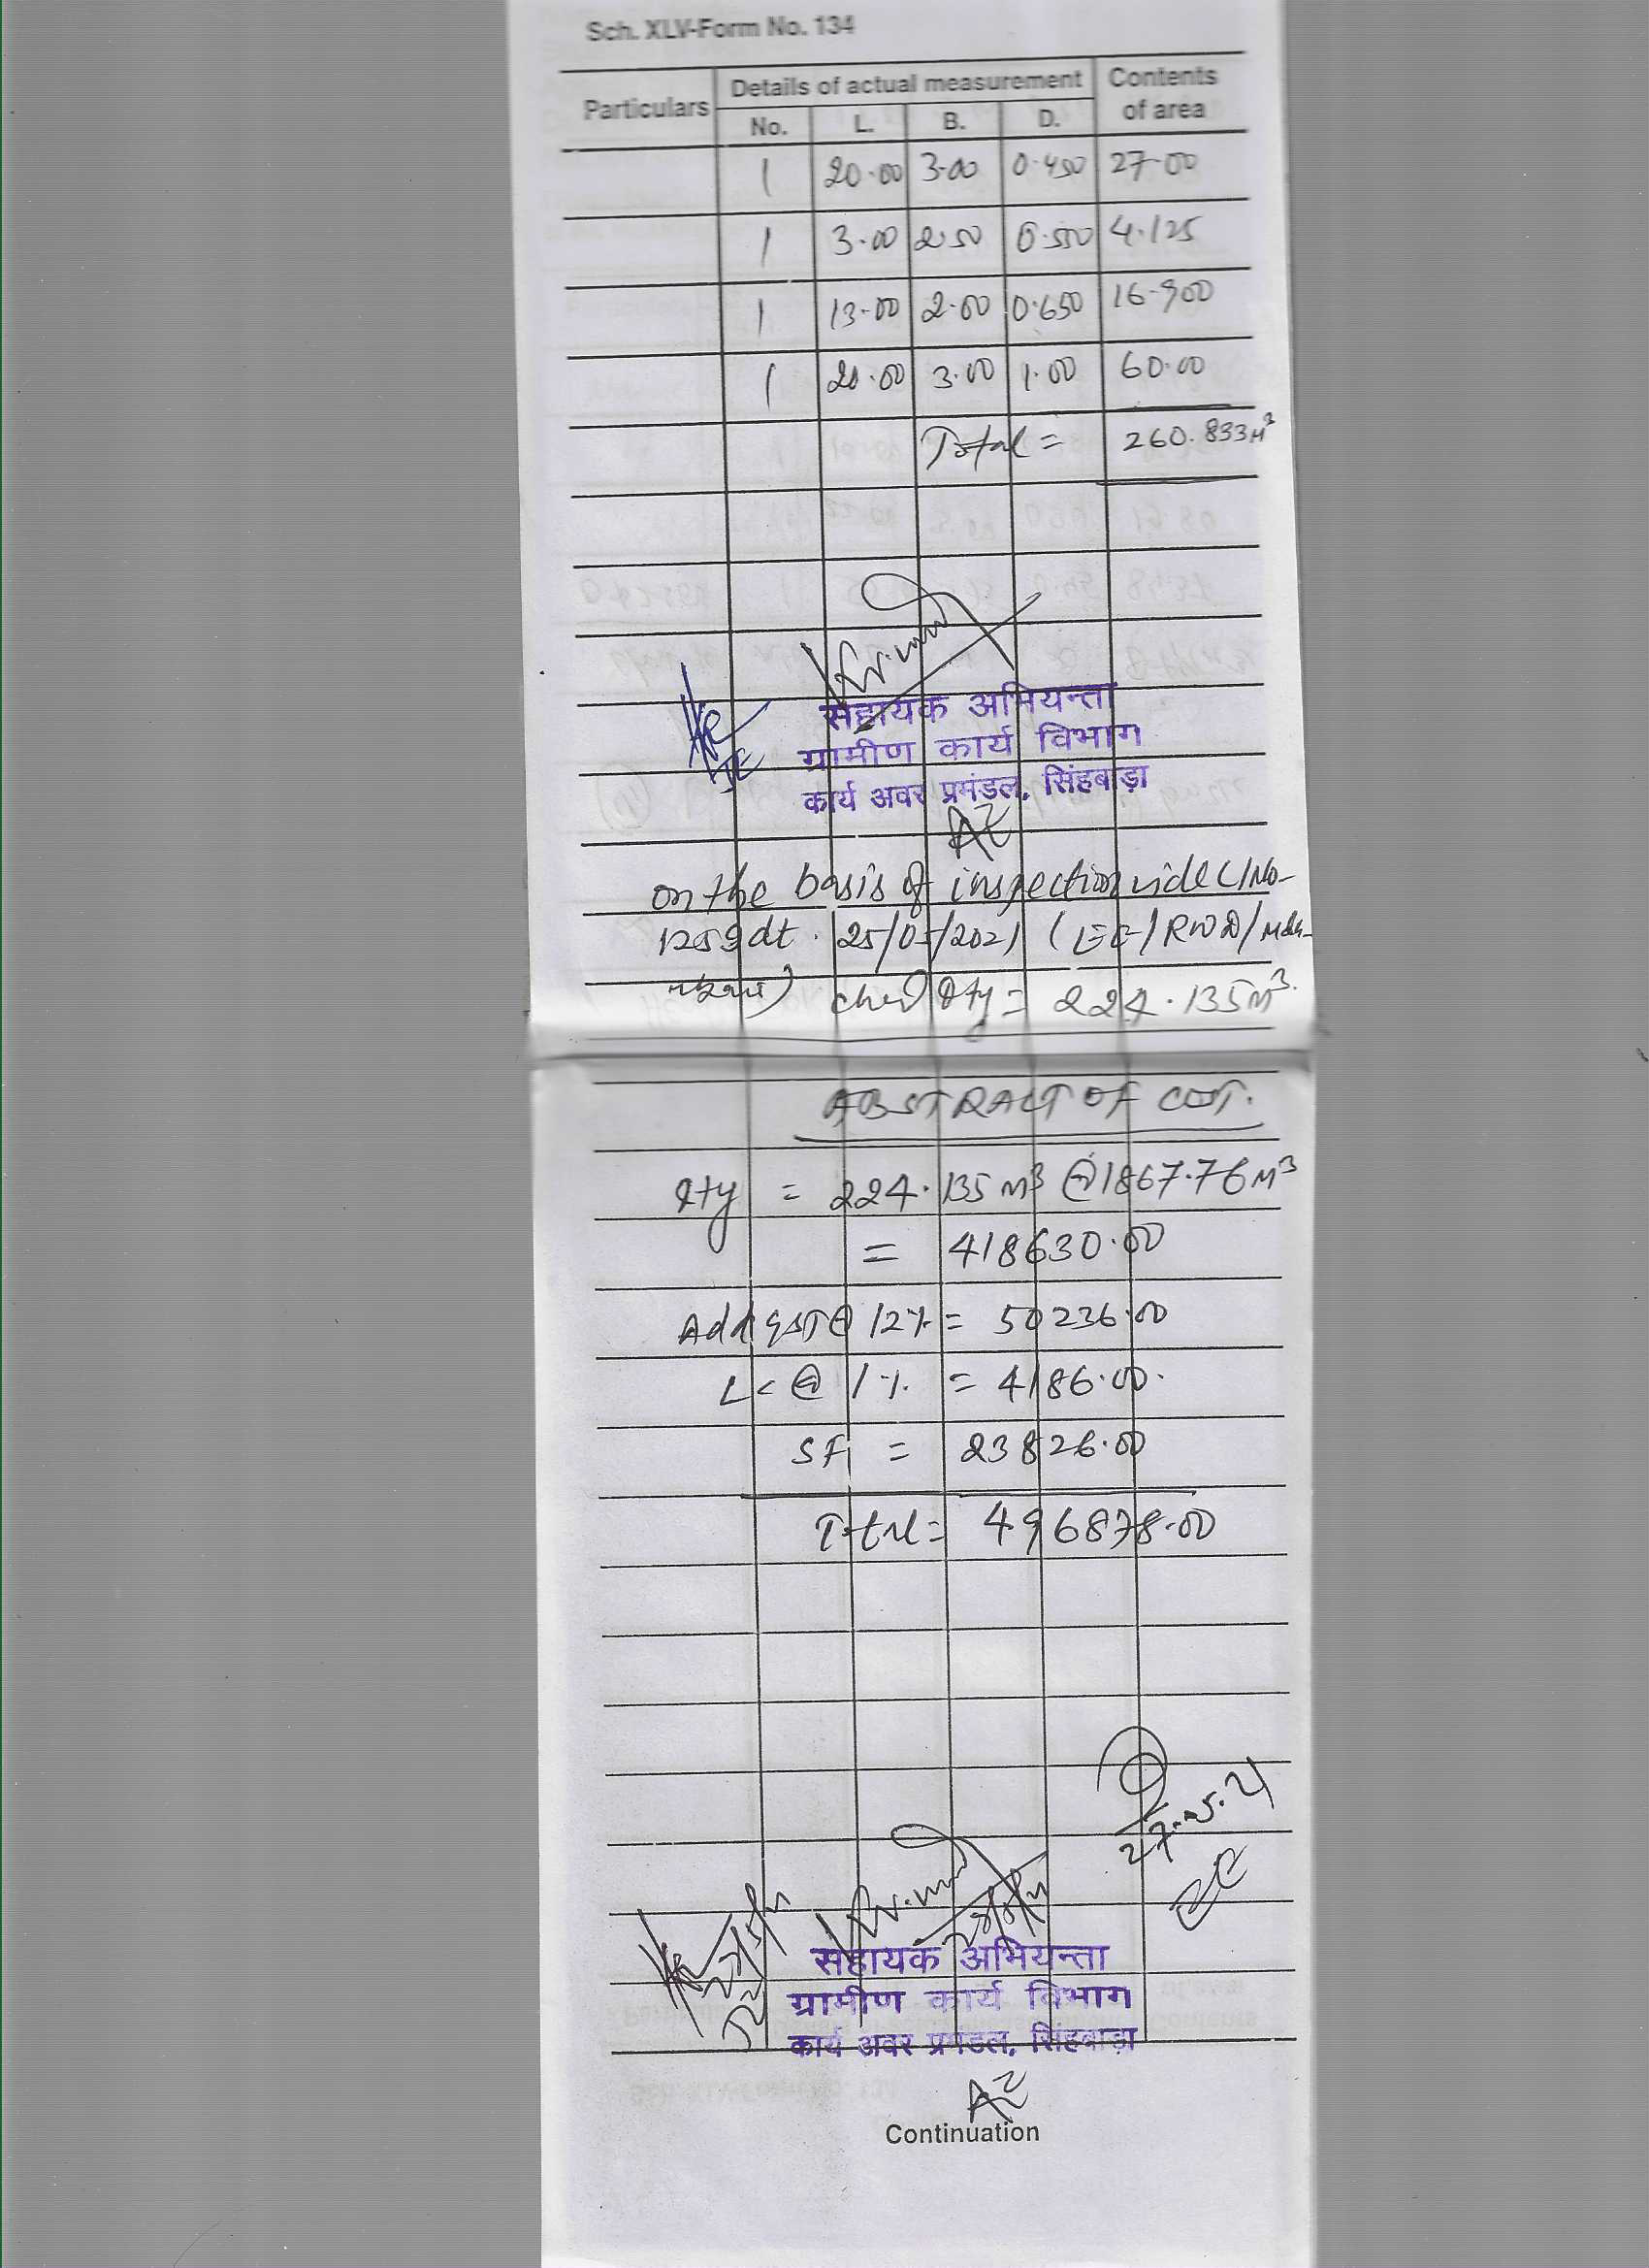 Sch. XLV-Form No. 134
Particulars Details of actual measurement Contents of area
No. L. B. D.
1 20.00 3.00 0.450 27.00
1 3.00 2.50 0.550 4.125
1 13.00 2.00 0.650 16.900
1 20.00 3.00 1.00 60.00
Total = 260.833 M³
सहायक अभियन्ता
ग्रामीण कार्य विभाग
कार्य अवर प्रमंडल, सिंहबाड़ा
JE
AE
on the basis of inspection vide L/No-
1259 dt. 25/05/2021 (EE/RWD/
Qty = 224.135 m³.
ABSTRACT OF COST.
Qty = 224.135 m³ @ 1867.76 M³
= 418630.00
Add GST @ 12% = 50236.00
LC @ 1% = 4186.00.
SF = 23826.00
Total = 496878.00
27.5.21
EE
सहायक अभियन्ता
ग्रामीण कार्य विभाग
कार्य अवर प्रमंडल, सिंहबाड़ा
AE
Continuation